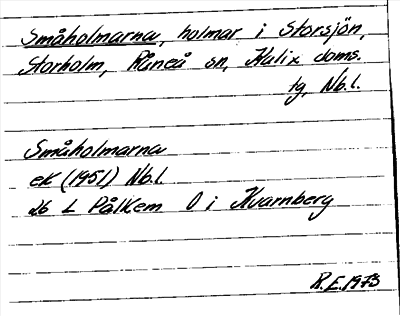 Småholmarna, holmar i Storsjön,
Storholm, Råneå sn, Kalix doms.
tg, Nb.l.
Småholmarna
ek (1951) Nb.l.
db L Pålkem O i Kvarnberg
R.E.1973